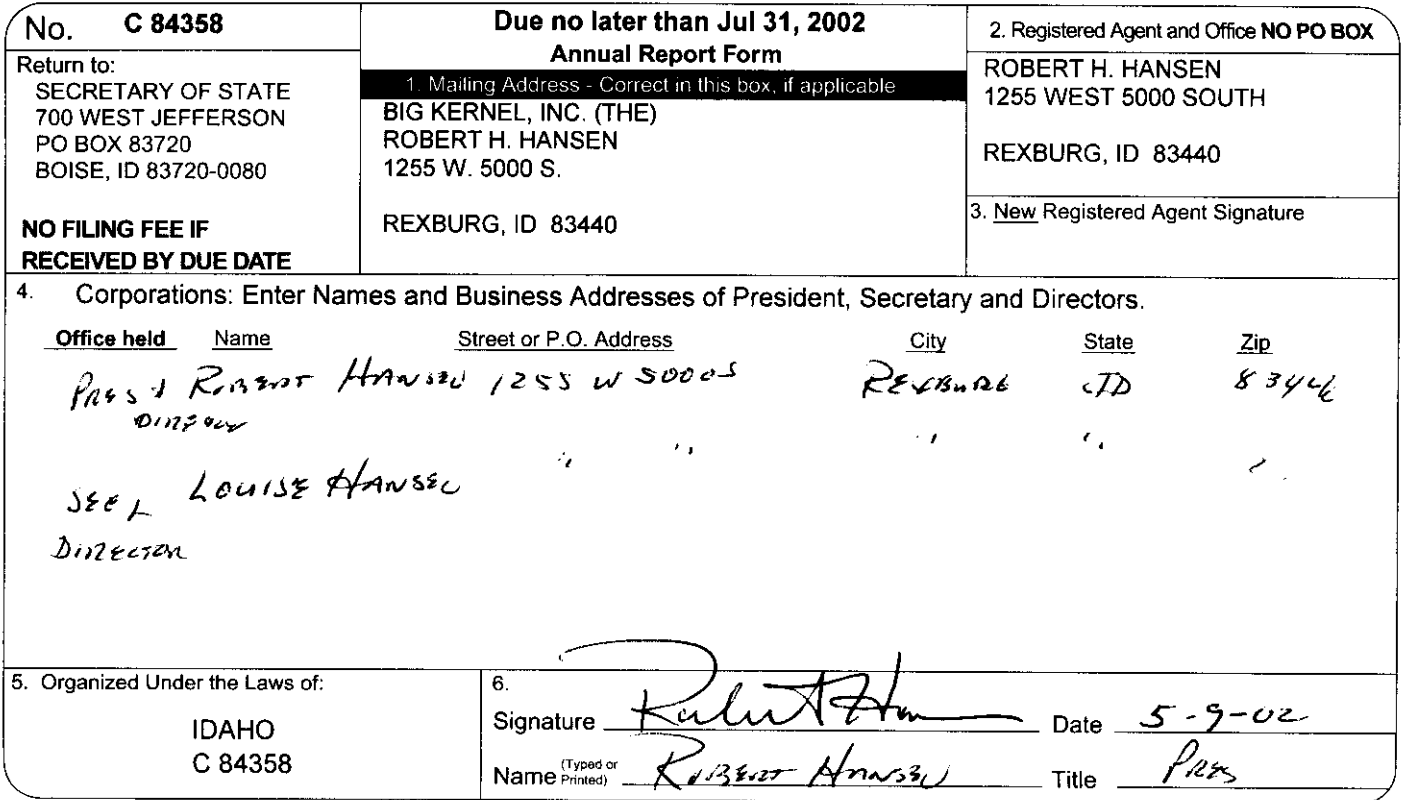 No. C 84358
Return to:
SECRETARY OF STATE
700 WEST JEFFERSON
PO BOX 83720
BOISE, ID 83720-0080
NO FILING FEE IF
RECEIVED BY DUE DATE
Due no later than Jul 31, 2002
Annual Report Form
1. Mailing Address - Correct in this box, if applicable
BIG KERNEL, INC. (THE)
ROBERT H. HANSEN
1255 W. 5000 S.
REXBURG, ID 83440
2. Registered Agent and Office NO PO BOX
ROBERT H. HANSEN
1255 WEST 5000 SOUTH
REXBURG, ID 83440
3. New Registered Agent Signature
4. Corporations: Enter Names and Business Addresses of President, Secretary and Directors.
Office held Name Street or P.O. Address City State Zip
PRES ROBERT HANSEN 1255 W 5000 S REXBURG ID
DIRECTOR
LOUISE HANSEN " " " " "
DIRECTOR
5. Organized Under the Laws of:
IDAHO
C 84358
6.
Signature Robert Hansen Date 5-9-02
Name (Typed or Printed) ROBERT HANSEN Title PRES